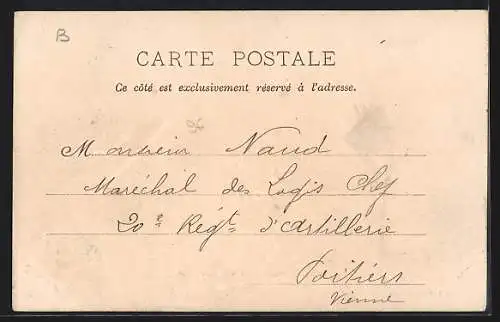 B
CARTE POSTALE
Ce côté est exclusivement réservé à l'adresse.
96
Monsieur Naud
Maréchal des Logis Chef
20e Régt d'Artillerie
Poitiers
Vienne